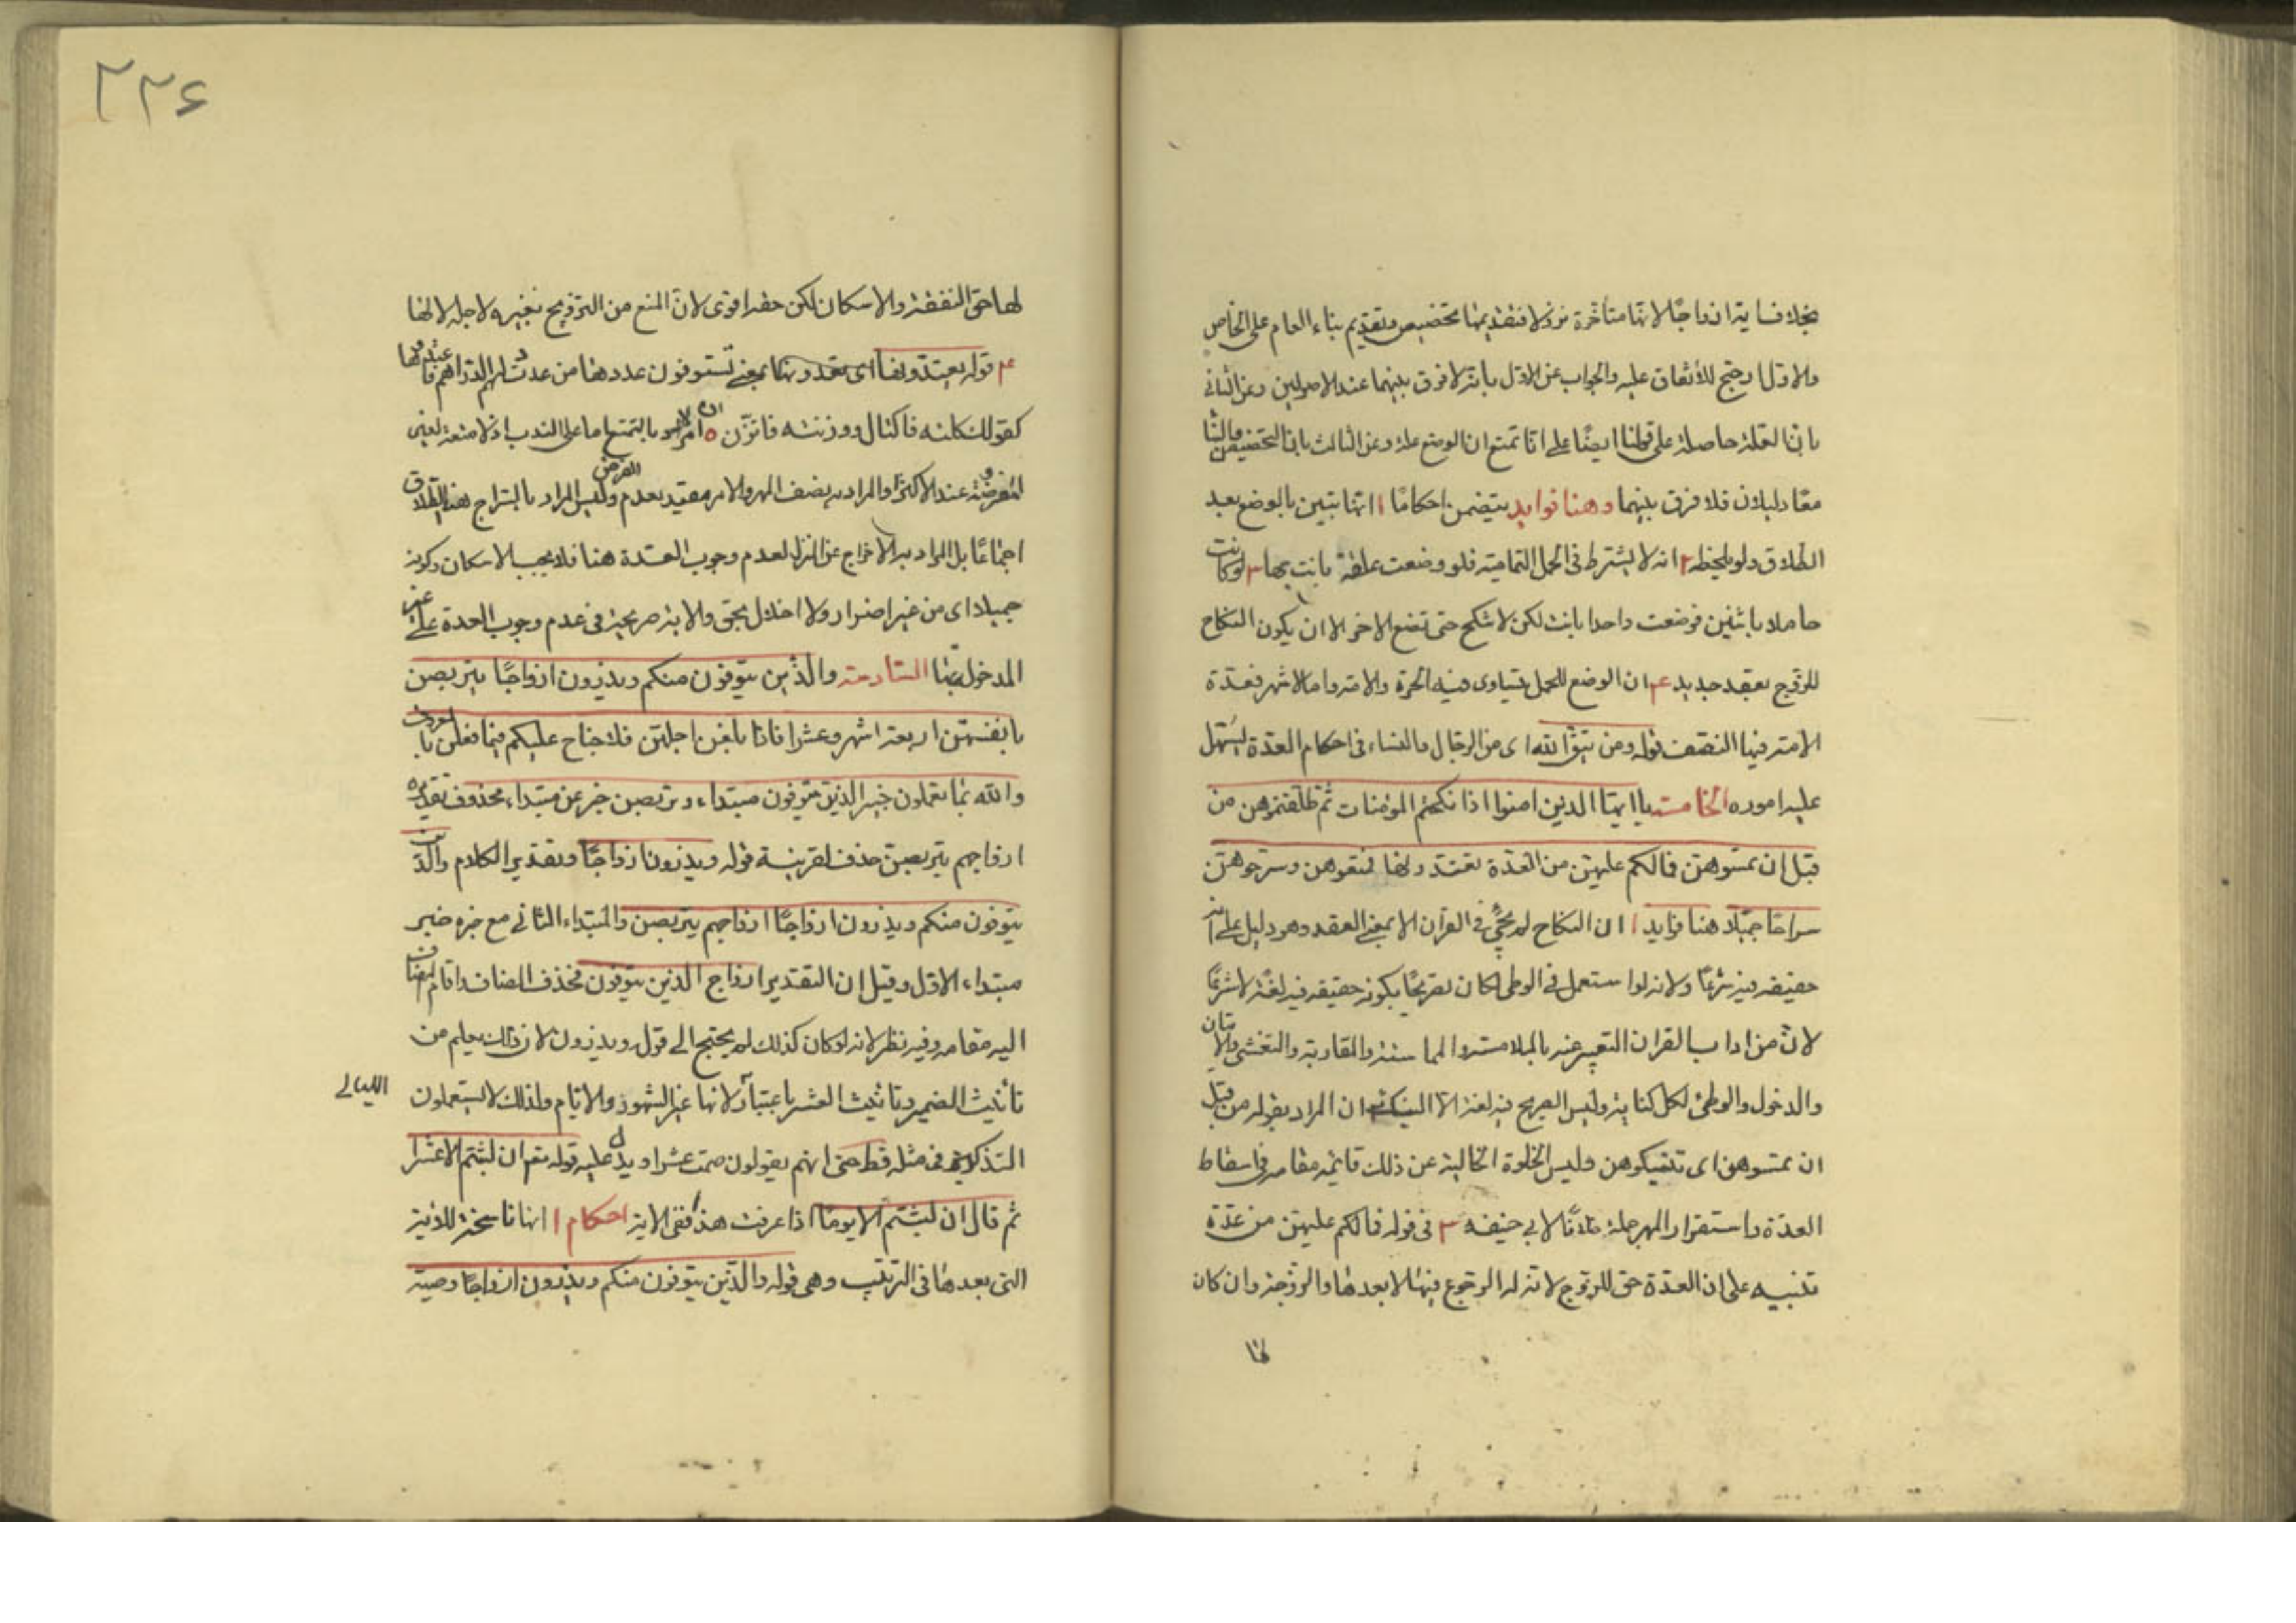 بخلاف اية ازواجًا لانها متأخرة نزولا فتقديمها تخصيص وتقديم بناء العام على الخاص
والاول ارجح للأتفاق عليه والجواب عن الاول بانه لا فرق بينهما عند الاصوليين وعن الثانى
بان العلة حاصلة على قولنا ايضًا على انا نمنع ان الوضع علة وعن الثالث بان التخصيص والبناء
معًا دليلان فلا فرق بينهما وهنا فوايد يتضمن احكامًا ١ انها تبين بالوضع بعد
الطلاق ولو بلحظه ٢ انه لا يشترط فى الحمل التمامية فلو وضعت علقة بانت بها ٣ لو كانت
حاملا باثنين فوضعت واحدا بانت لكن لا تنكح حتى تضع الاخر الا ان يكون النكاح
للزوج بعقد جديد ٤ ان الوضع للحمل يتساوى فيه الحرة والامة واما الاشهر فعدة
الامة فيها النصف قوله ومن يتق الله اى من الرجال والنساء فى احكام العدة يسهل
عليه اموره الخامسة يا ايها الذين امنوا اذا نكحتم المؤمنات ثم طلقتموهن من
قبل ان تمسوهن فمالكم عليهن من العدة تعتدونها فمتعوهن وسرحوهن
سراحًا جميلا هنا فوايد ١ ان النكاح لم يجئ فى القرآن الا بمعنى العقد وهو دليل على انه
حقيقه فيه شرعًا ولانه لو استعمل فى الوطى لكان تصريحًا بكونه حقيقه فيه لغة لا شرعًا
لان من اداب القران التعبير عنه بالملامسة والمماسة والمقاربة والتغشى والاتيان
والدخول والوطئ لكل كناية وليس الصريح فيه لغة الا النيك ٢ ان المراد بقوله من قبل
ان تمسوهن اى تنيكوهن وليس الخلوة الخالية عن ذلك قائمة مقامه فى اسقاط
العدة واستقرار المهر جملة خلافًا لابى حنيفه ٣ فى قوله فمالكم عليهن من عدة
تنبيه على ان العدة حق للزوج لانه له الرجوع فيها لا بعدها والزوجة وان كان
لها
٢٢۶
لها حق النفقة والاسكان لكن حقه اقوى لان المنع من التزويج بغيره لاجله لا لها
٤ قوله تعتدونها اى تعدونها بمعنى تستوفون عددها من عددت الدراهم فاعتدها
كقولك كلته فاكتال ووزنته فاتزن ٥ الامر بالتمتع اما على الندب اذ لا متعة لغير
المفوضة عند الاكثر او المراد به نصف المهر والامر مقيد بعدم الفرض وليس المراد بالسراح هنا الطلاق
اجماعًا بل المراد به الاخراج عن المنزل لعدم وجوب العدة هنا فلا يجب الاسكان وكونه
جميلا اى من غير اضرار ولا اخلال بحق والاية صريحة فى عدم وجوب العدة على غير
المدخول بها السادسة والذين يتوفون منكم ويذرون ازواجًا يتربصن
بانفسهن اربعة اشهر وعشرا فاذا بلغن اجلهن فلا جناح عليكم فيما فعلن بالمعروف
والله بما تعملون خبير الذين يتوفون مبتداء ويتربصن خبر عن مبتداء محذوف تقديره
ازواجهم يتربصن حذف لقرينة قوله ويذرون ازواجًا وتقدير الكلام والذين
يتوفون منكم ويذرون ازواجًا ازواجهم يتربصن والمبتداء الثانى مع خبره خبر
مبتداء الاول وقيل ان التقدير ازواج الذين يتوفون فحذف المضاف واقام المضاف
اليه مقامه وفيه نظر لانه لو كان كذلك لم يحتج الى قول ويذرون لان ذلك يعلم من
تأنيث الضمير وتانيث العشر باعتبار الليالى لانها غير الشهور والايام ولذلك لا يستعملون
التذكير فى مثله قط حتى انهم يقولون صمت عشرا ويدل عليه قوله تعم ان لبثتم الا عشرا
ثم قال ان لبثتم الا يومًا اذا عرفت هذا ففى الاية احكام ١ انها ناسخة للاية
التى بعدها فى الترتيب وهى قوله والذين يتوفون منكم ويذرون ازواجًا وصية